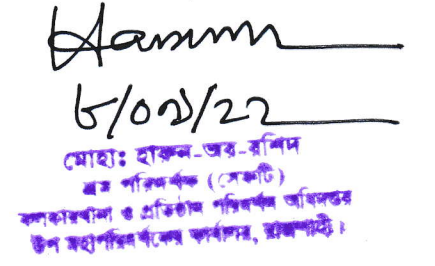 Harun
৮/০৯/২২
মোহা: হারুন-অর-রশিদ
শ্রম পরিদর্শক (সেফটি)
কলকারখানা ও প্রতিষ্ঠান পরিদর্শন অধিদপ্তর
উপ মহাপরিদর্শকের কার্যালয়, রাজশাহী।